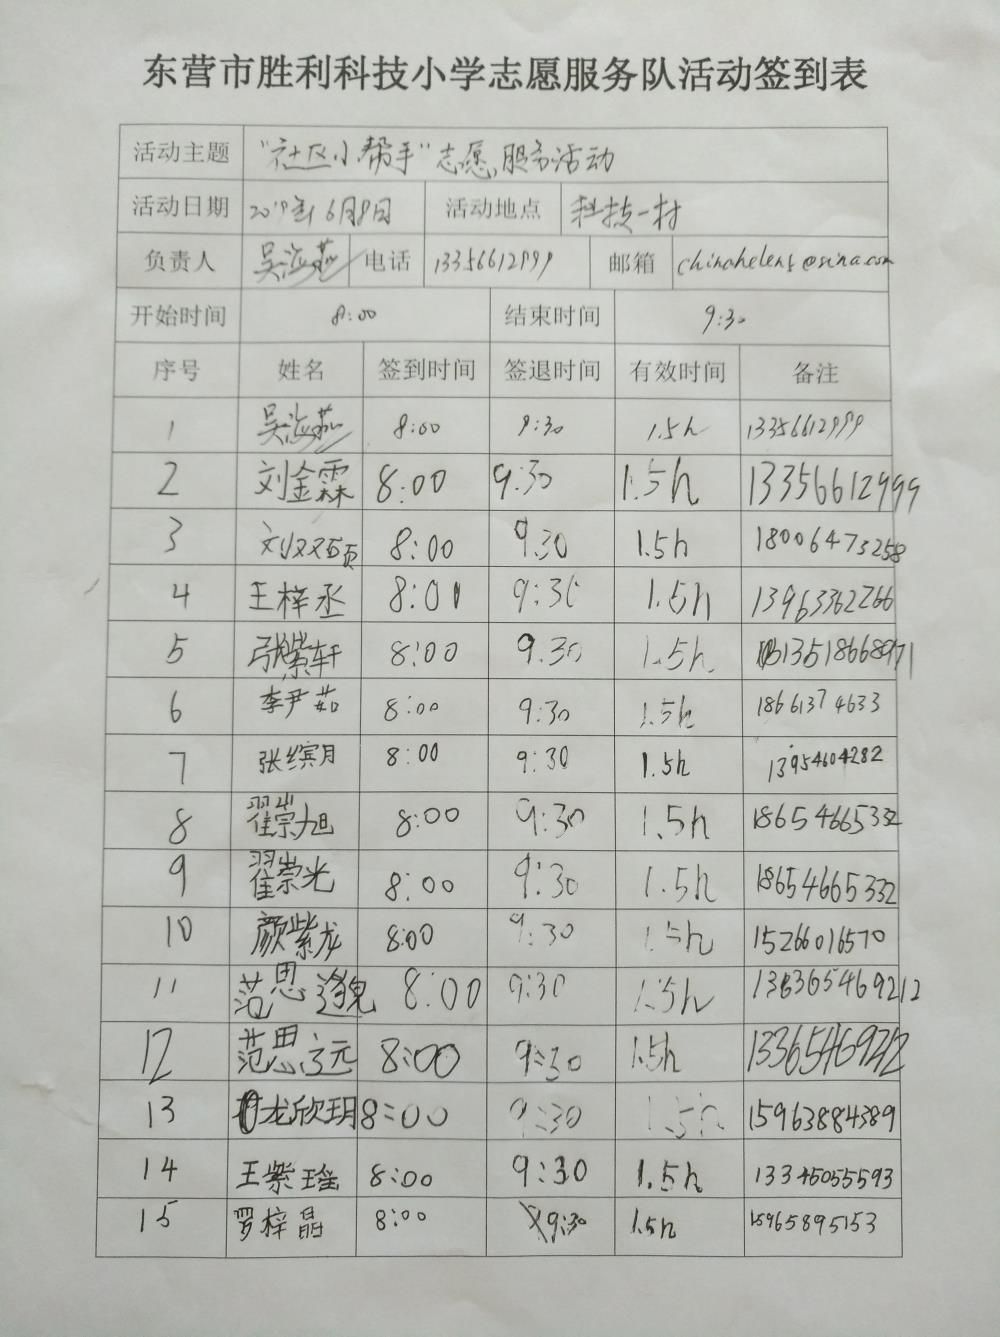 东营市胜利科技小学志愿服务队活动签到表
活动主题 “社区小帮手”志愿服务活动
活动日期 2019年6月8日 活动地点 科技一村
负责人 吴 电话 13356612999 邮箱 chinahelens@sina.com
开始时间 8:00 结束时间 9:30
序号 姓名 签到时间 签退时间 有效时间 备注
1 吴 8:00 9:30 1.5h 13356612999
2 刘金霖 8:00 9:30 1.5h 13356612999
3 刘双硕 8:00 9:30 1.5h 18006473258
4 王梓丞 8:00 9:30 1.5h 13963362266
5 张紫轩 8:00 9:30 1.5h 13518668971
6 李尹茹 8:00 9:30 1.5h 18661374633
7 张缤月 8:00 9:30 1.5h 13954604282
8 翟崇旭 8:00 9:30 1.5h 18654665332
9 翟崇光 8:00 9:30 1.5h 18654665332
10 颜紫龙 8:00 9:30 1.5h 15266016570
11 范思邈 8:00 9:30 1.5h
12 范思远 8:00 9:30 1.5h 13365469212
13 龙欣玥 8:00 9:30 1.5h 15963884389
14 王紫瑶 8:00 9:30 1.5h 13345055593
15 罗梓晶 8:00 9:30 1.5h 15965895153